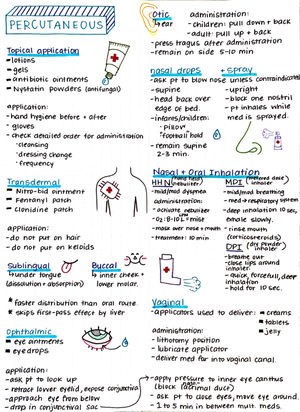 PERCUTANEOUS
Topical application
lotions
gels
antibiotic ointments
Nystatin powders (antifungal)
application:
- hand hygiene before + after
- gloves
- check detailed order for administration
cleansing
dressing change
frequency
Transdermal
Nitro-bid ointment
Fentanyl patch
Clonidine patch
application:
- do not put on hair
- do not put on keloids
Sublingual
↳ under tongue
(dissolution + absorption)
Buccal
↳ inner cheek +
lower molar.
* faster distribution than oral route.
* skips first-pass effect by liver
Ophthalmic
eye ointments
eye drops
application:
- ask pt to look up
- retract lower eyelid, expose conjunctival
- approach eye from below
- drop in conjunctival sac
Otic
↳ ear
administration:
- children: pull down + back
- adult: pull up + back
- press tragus after administration
- remain on side 5-10 min
nasal drops + spray
- ask pt to blow nose unless contraindicated
- supine
- head back over
edge of bed.
- infants/children:
"pillow"
"football" hold
- remain supine
2-3 min.
- upright
- block one nostril
- pt inhales while
med is sprayed.
Nasal + Oral Inhalation
HHN (hand held nebulizer)
- mild/mod dyspnea
administration:
- activate nebulizer
- mask over nose + mouth
- treatment: 10 min
MPI (metered dose inhaler)
- mild/mod breathing
- med → respiratory system
- deep inhalation 10 sec,
exhale slowly.
- rinse mouth
(corticosteroids)
DPI (dry powder inhaler)
- breathe out
- close lips around
inhaler
- quick, forceful, deep
inhalation
- hold for 10 sec.
Vaginal
- applicators used to deliver:
creams
tablets
jelly
administration:
- lithotomy position
- lubricate applicator
- deliver med far into vaginal canal.
apply pressure to inner eye canthus
block (lacrimal duct)
- ask pt to close eyes, move eye around.
- 1 to 5 min in between mult. meds.